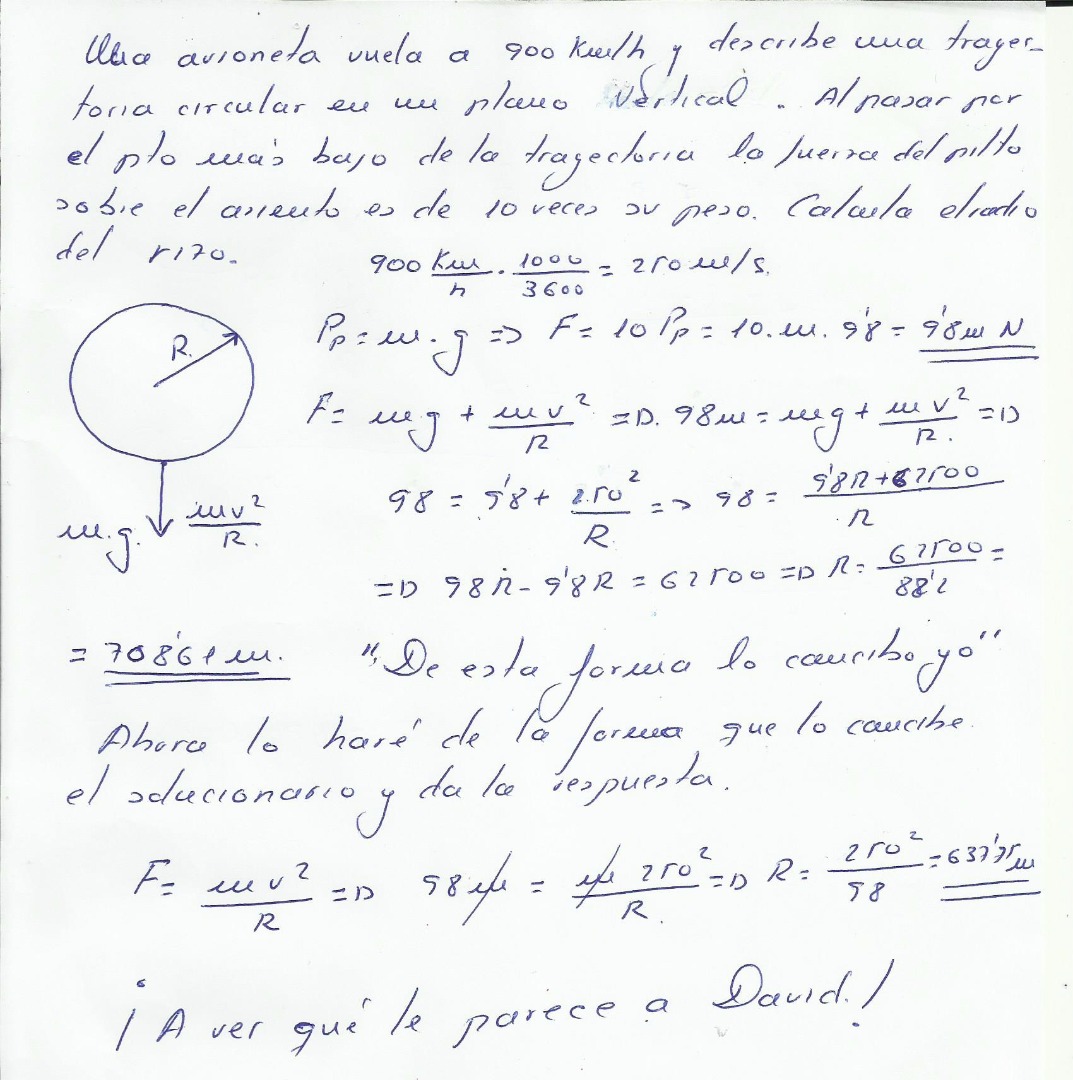 Una avioneta vuela a 900 Km/h y describe una trayec-
toria circular en un plano vertical. Al pasar por
el pto más bajo de la trayectoria la fuerza del pilto
sobre el asiento es de 10 veces su peso. Calcula el radio
del rizo.
900 Km/h · 1000/3600 = 250 m/s.
R.
Pp = m·g => F = 10 Pp = 10·m·9'8 = 9'8m N
F = mg + mv²/R => 98m = mg + mv²/R. =>
98 = 9'8 + 250²/R => 98 = 9'8R+62500/R
m·g. mv²/R.
=> 98R - 9'8R = 62500 => R = 62500/88'2 =
= 708'61 m. "De esta forma lo concibo yo"
Ahora lo haré de la forma que lo concibe
el solucionario y da la respuesta.
F = mv²/R => 98m = m 250²/R. => R = 250²/98 = 637'75m
¡A ver qué le parece a David!